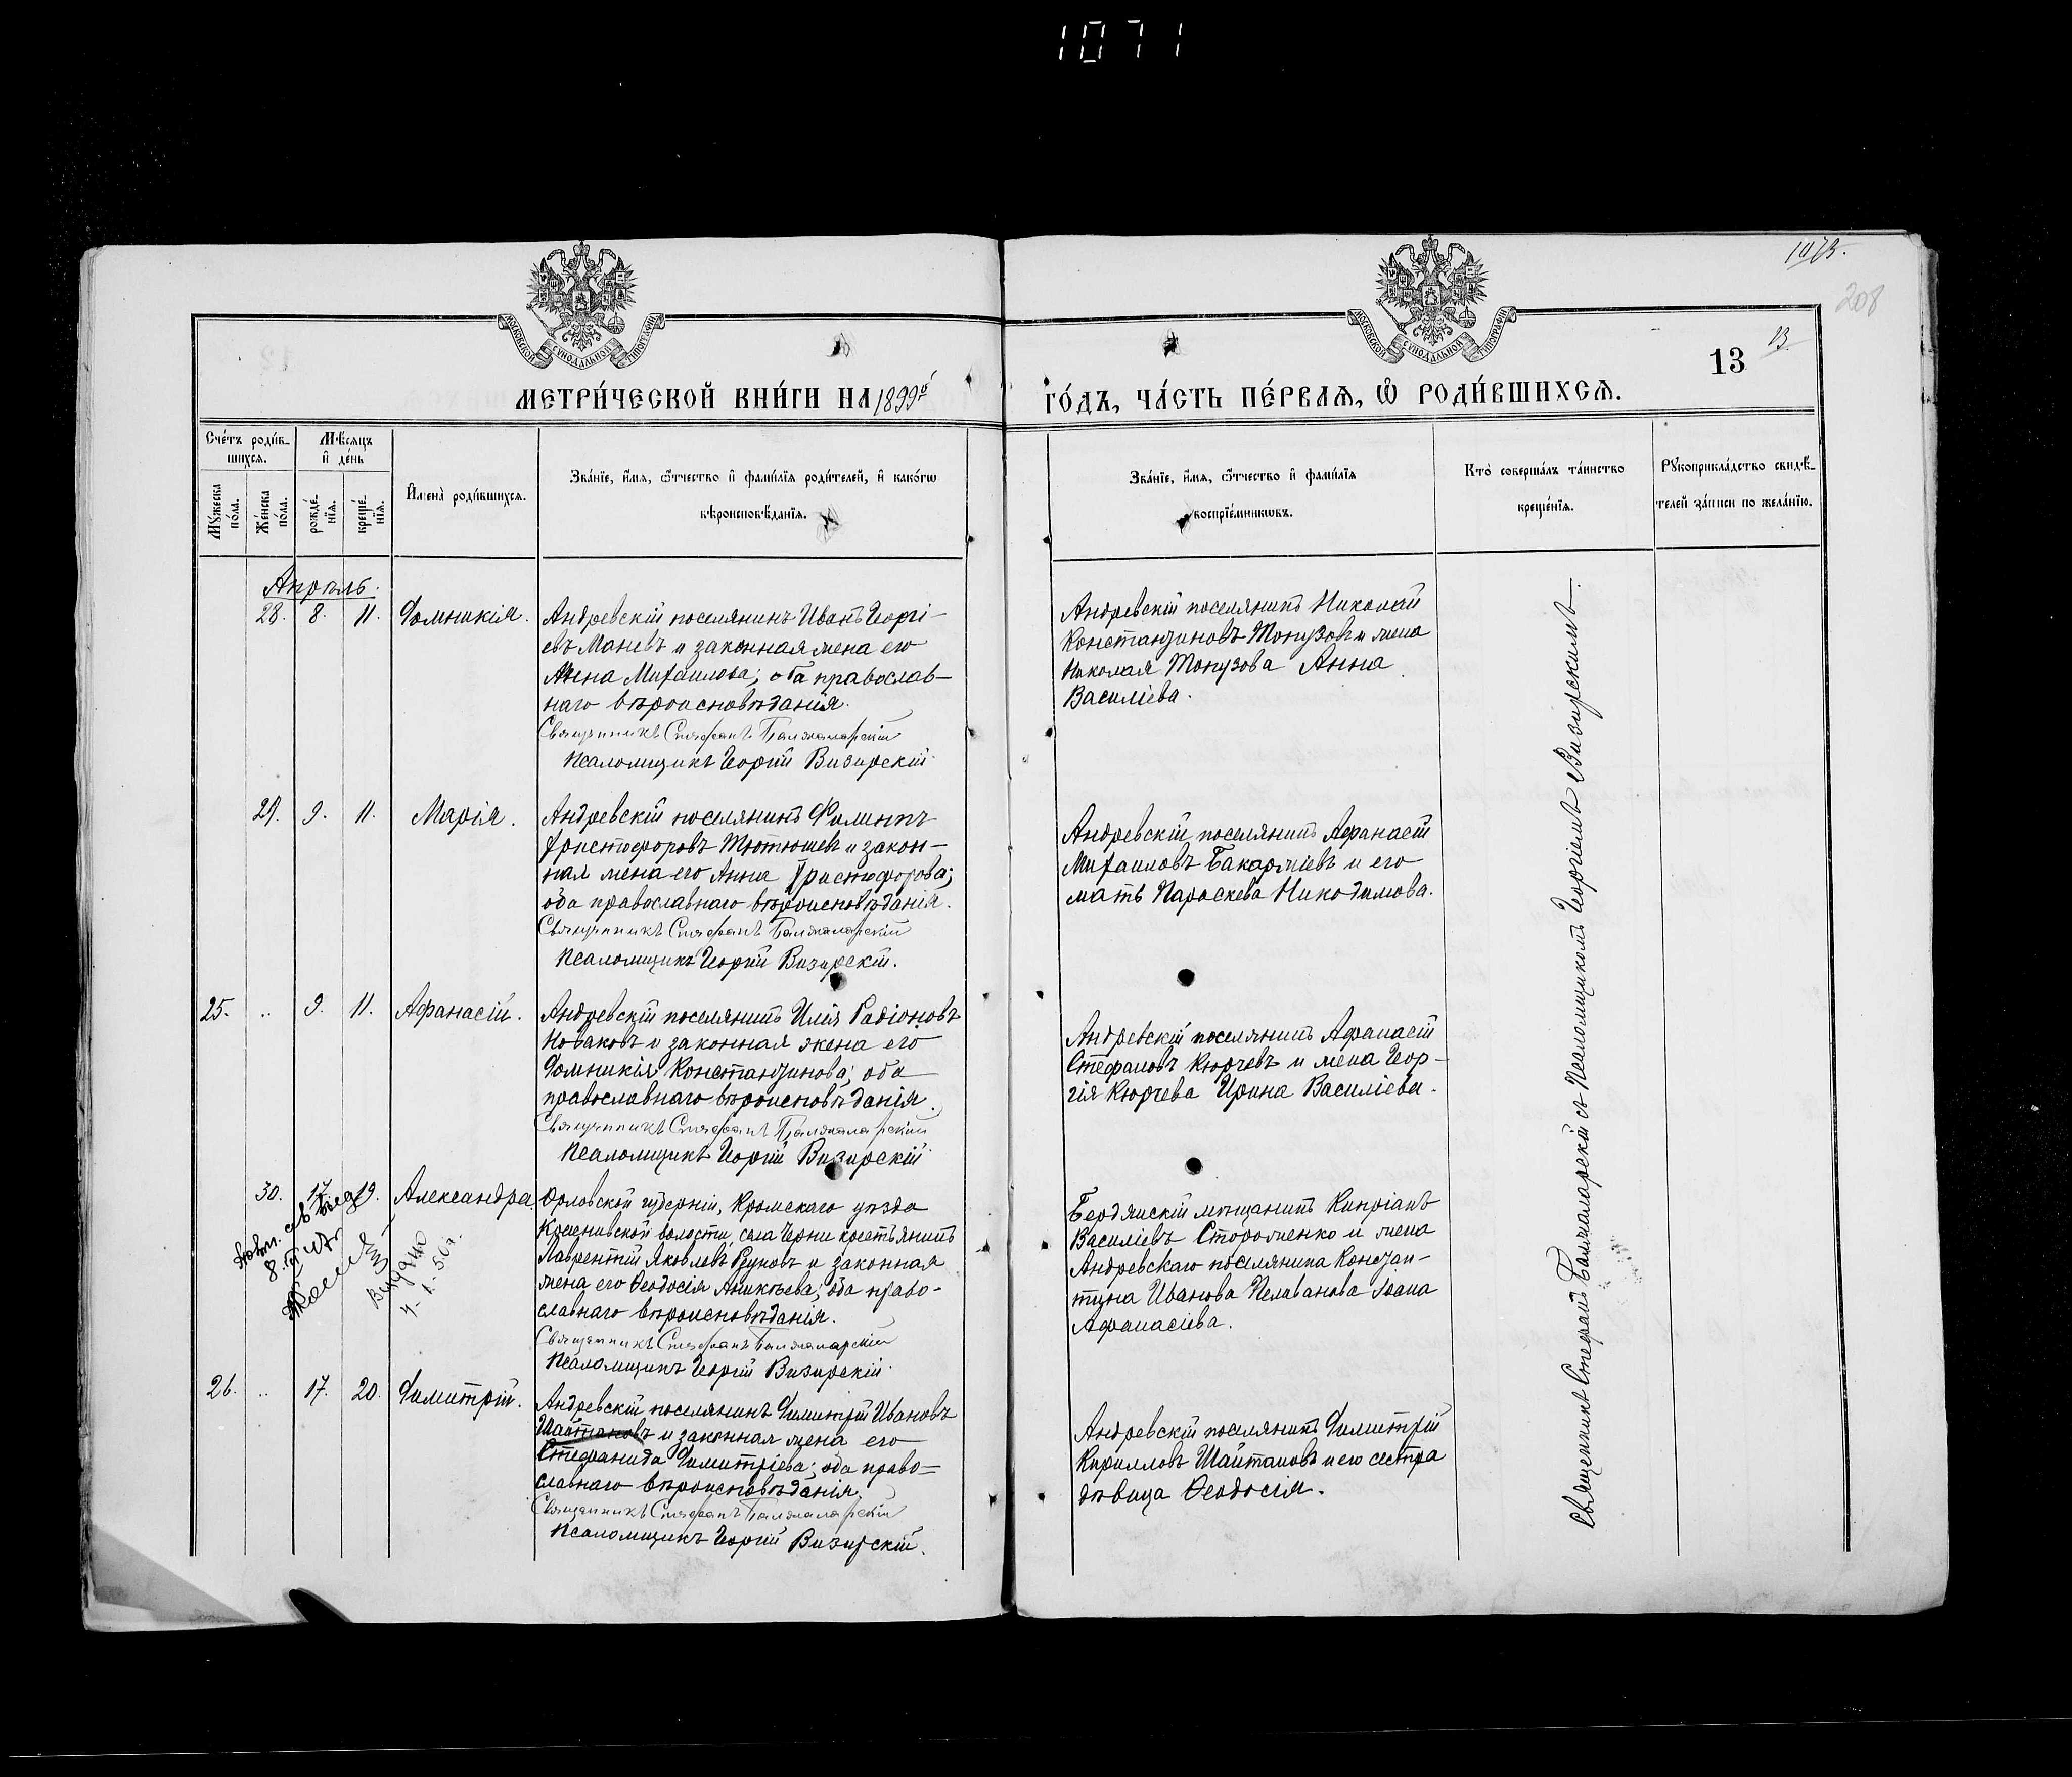 1071
1073.
208
13
13
МОСКОВСКОЙ СУНОДАЛЬНОЙ ТИПОГРАФІИ
МОСКОВСКОЙ СУНОДАЛЬНОЙ ТИПОГРАФІИ
МЕТРИ́ЧЕСКОЙ КНИ́ГИ НА 1899й
ГО́ДЪ, ЧА́СТЬ ПЕ́РВАѦ, Ѡ҆ РОДИ́ВШИХСѦ.
Сче́тъ роди́в-
шихсѧ.
Мѣ́сѧцъ
и҆ де́нь
Мꙋ́жеска
по́ла.
Же́нска
по́ла.
рожде́-
нїѧ.
креще́-
нїѧ.
И҆мена̀ роди́вшихсѧ.
Зва́нїе, и҆́мѧ, ѻ҆́тчество и҆ фами́лїѧ роди́телей, и҆ како́гѡ
вѣроисповѣ́данїѧ.
Зва́нїе, и҆́мѧ, ѻ҆́тчество и҆ фами́лїѧ
воспрїе́мникѡвъ.
Кто̀ соверша́лъ та́инство
креще́нїѧ.
Рꙋкоприкла́дство свидѣ́-
телей за́писи по жела́нїю.
Апрѣль.
28. 8. 11. Домникія.
Андревскій поселянинъ Иванъ Георгі-
евъ Маневъ и законная жена его
Анна Михаилова; оба православ-
наго вѣроисповѣданія.
Священникъ Стефанъ Балжаларскій
Псаломщикъ Георгій Визирскій.
Андревскій поселянинъ Николай
Константиновъ Топузовъ и жена
Николая Топузова Анна
Василіева.
29. 9. 11. Марія.
Андревскій поселянинъ Филиппъ
Христофоровъ Тютюшевъ и закон-
ная жена его Анна Христофорова;
оба православнаго вѣроисповѣданія.
Священникъ Стефанъ Балжаларскій
Псаломщикъ Георгій Визирскій.
Андревскій поселянинъ Афанасій
Михаиловъ Бакаржіевъ и его
мать Параскева Никодимова.
25. .. 9. 11. Афанасій.
Андревскій поселянинъ Илія Радіоновъ
Новаковъ и законная жена его
Домникія Константинова; оба
православнаго вѣроисповѣданія.
Священникъ Стефанъ Балжаларскій
Псаломщикъ Георгій Визирскій.
Андревскій поселянинъ Афанасій
Стефановъ Кюрчевъ и жена Геор-
гія Кюрчева Ирина Василіева.
30. 17. 19. Александра.
Орловской губерніи, Кромскаго уѣзда
волости, села Черни крестьянинъ
Лаврентій Яковлевъ и законная
жена его Ѳеодосія Аникѣева; оба право-
славнаго вѣроисповѣданія.
Священникъ Стефанъ Балжаларскій
Псаломщикъ Георгій Визирскій.
Бердянскій мѣщанинъ Кипріанъ
Василіевъ Стороженко и жена
Андревскаго поселянина Констан-
тина Иванова Пеливанова Іоана
Афанасіева.
26. .. 17. 20. Димитрій.
Андревскій поселянинъ Димитрій Ивановъ
Шайтановъ и законная жена его
Стефанида Димитріева; оба право-
славнаго вѣроисповѣданія.
Священникъ Стефанъ Балжаларскій
Псаломщикъ Георгій Визирскій.
Андревскій поселянинъ Димитрій
Кирилловъ Шайтановъ и его сестра
дѣвица Ѳеодосія.
Священникъ Стефанъ Балжаларскій съ Псаломщикомъ Георгіемъ Визирскимъ.